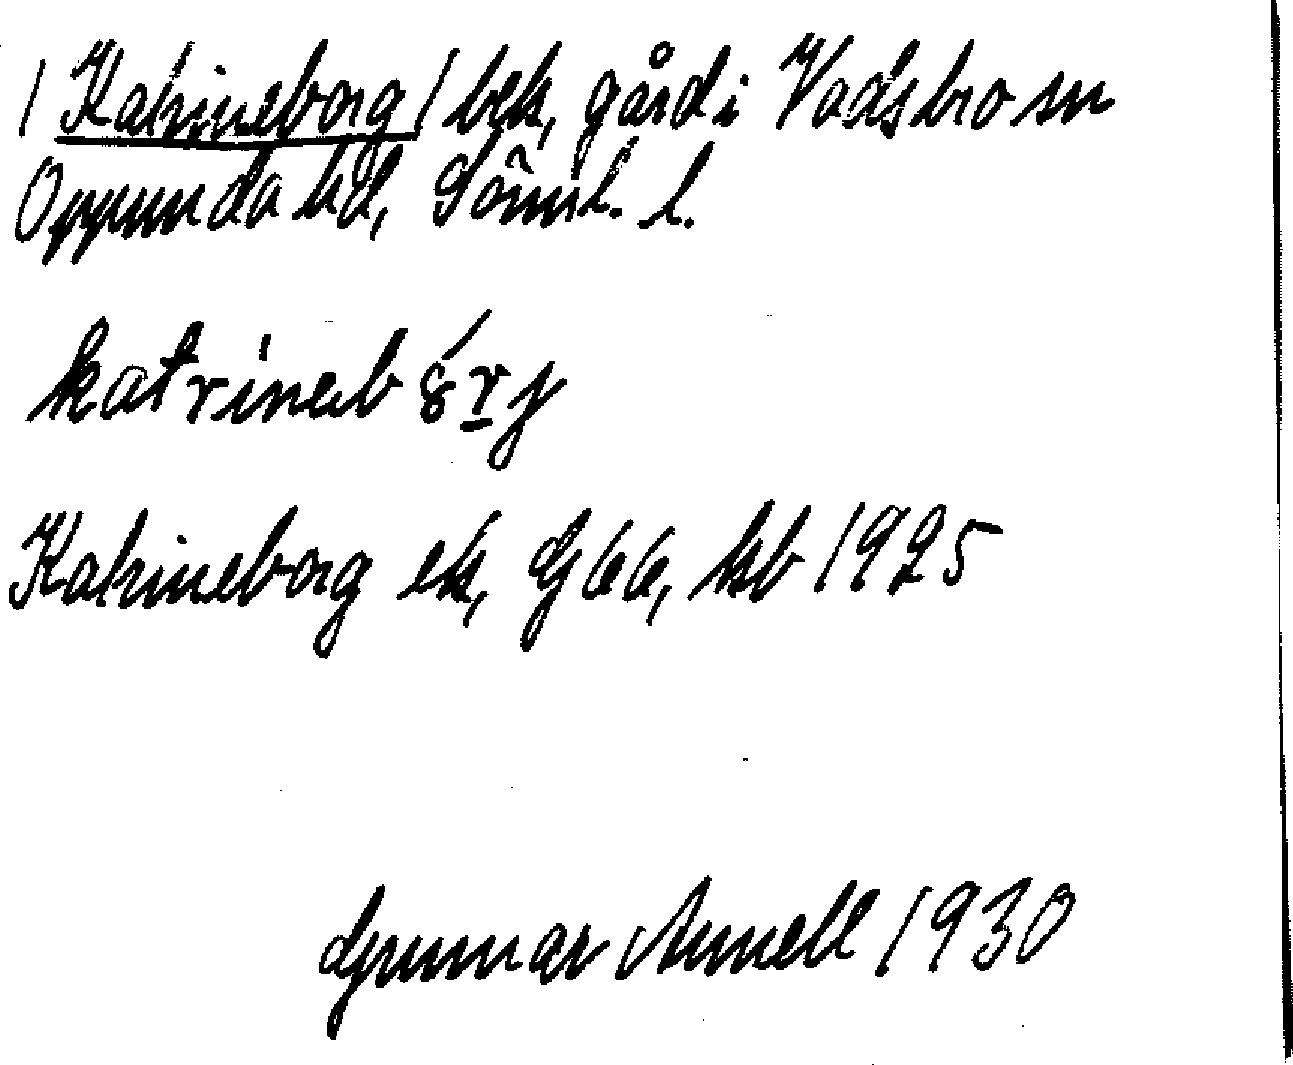 / Katrineborg / bek, gård i Vadsbro sn
Oppunda hd, Söml. l.
katrineb8́rj
Katrineborg ek, G66, hb 1925
Gunnar Annell 1930